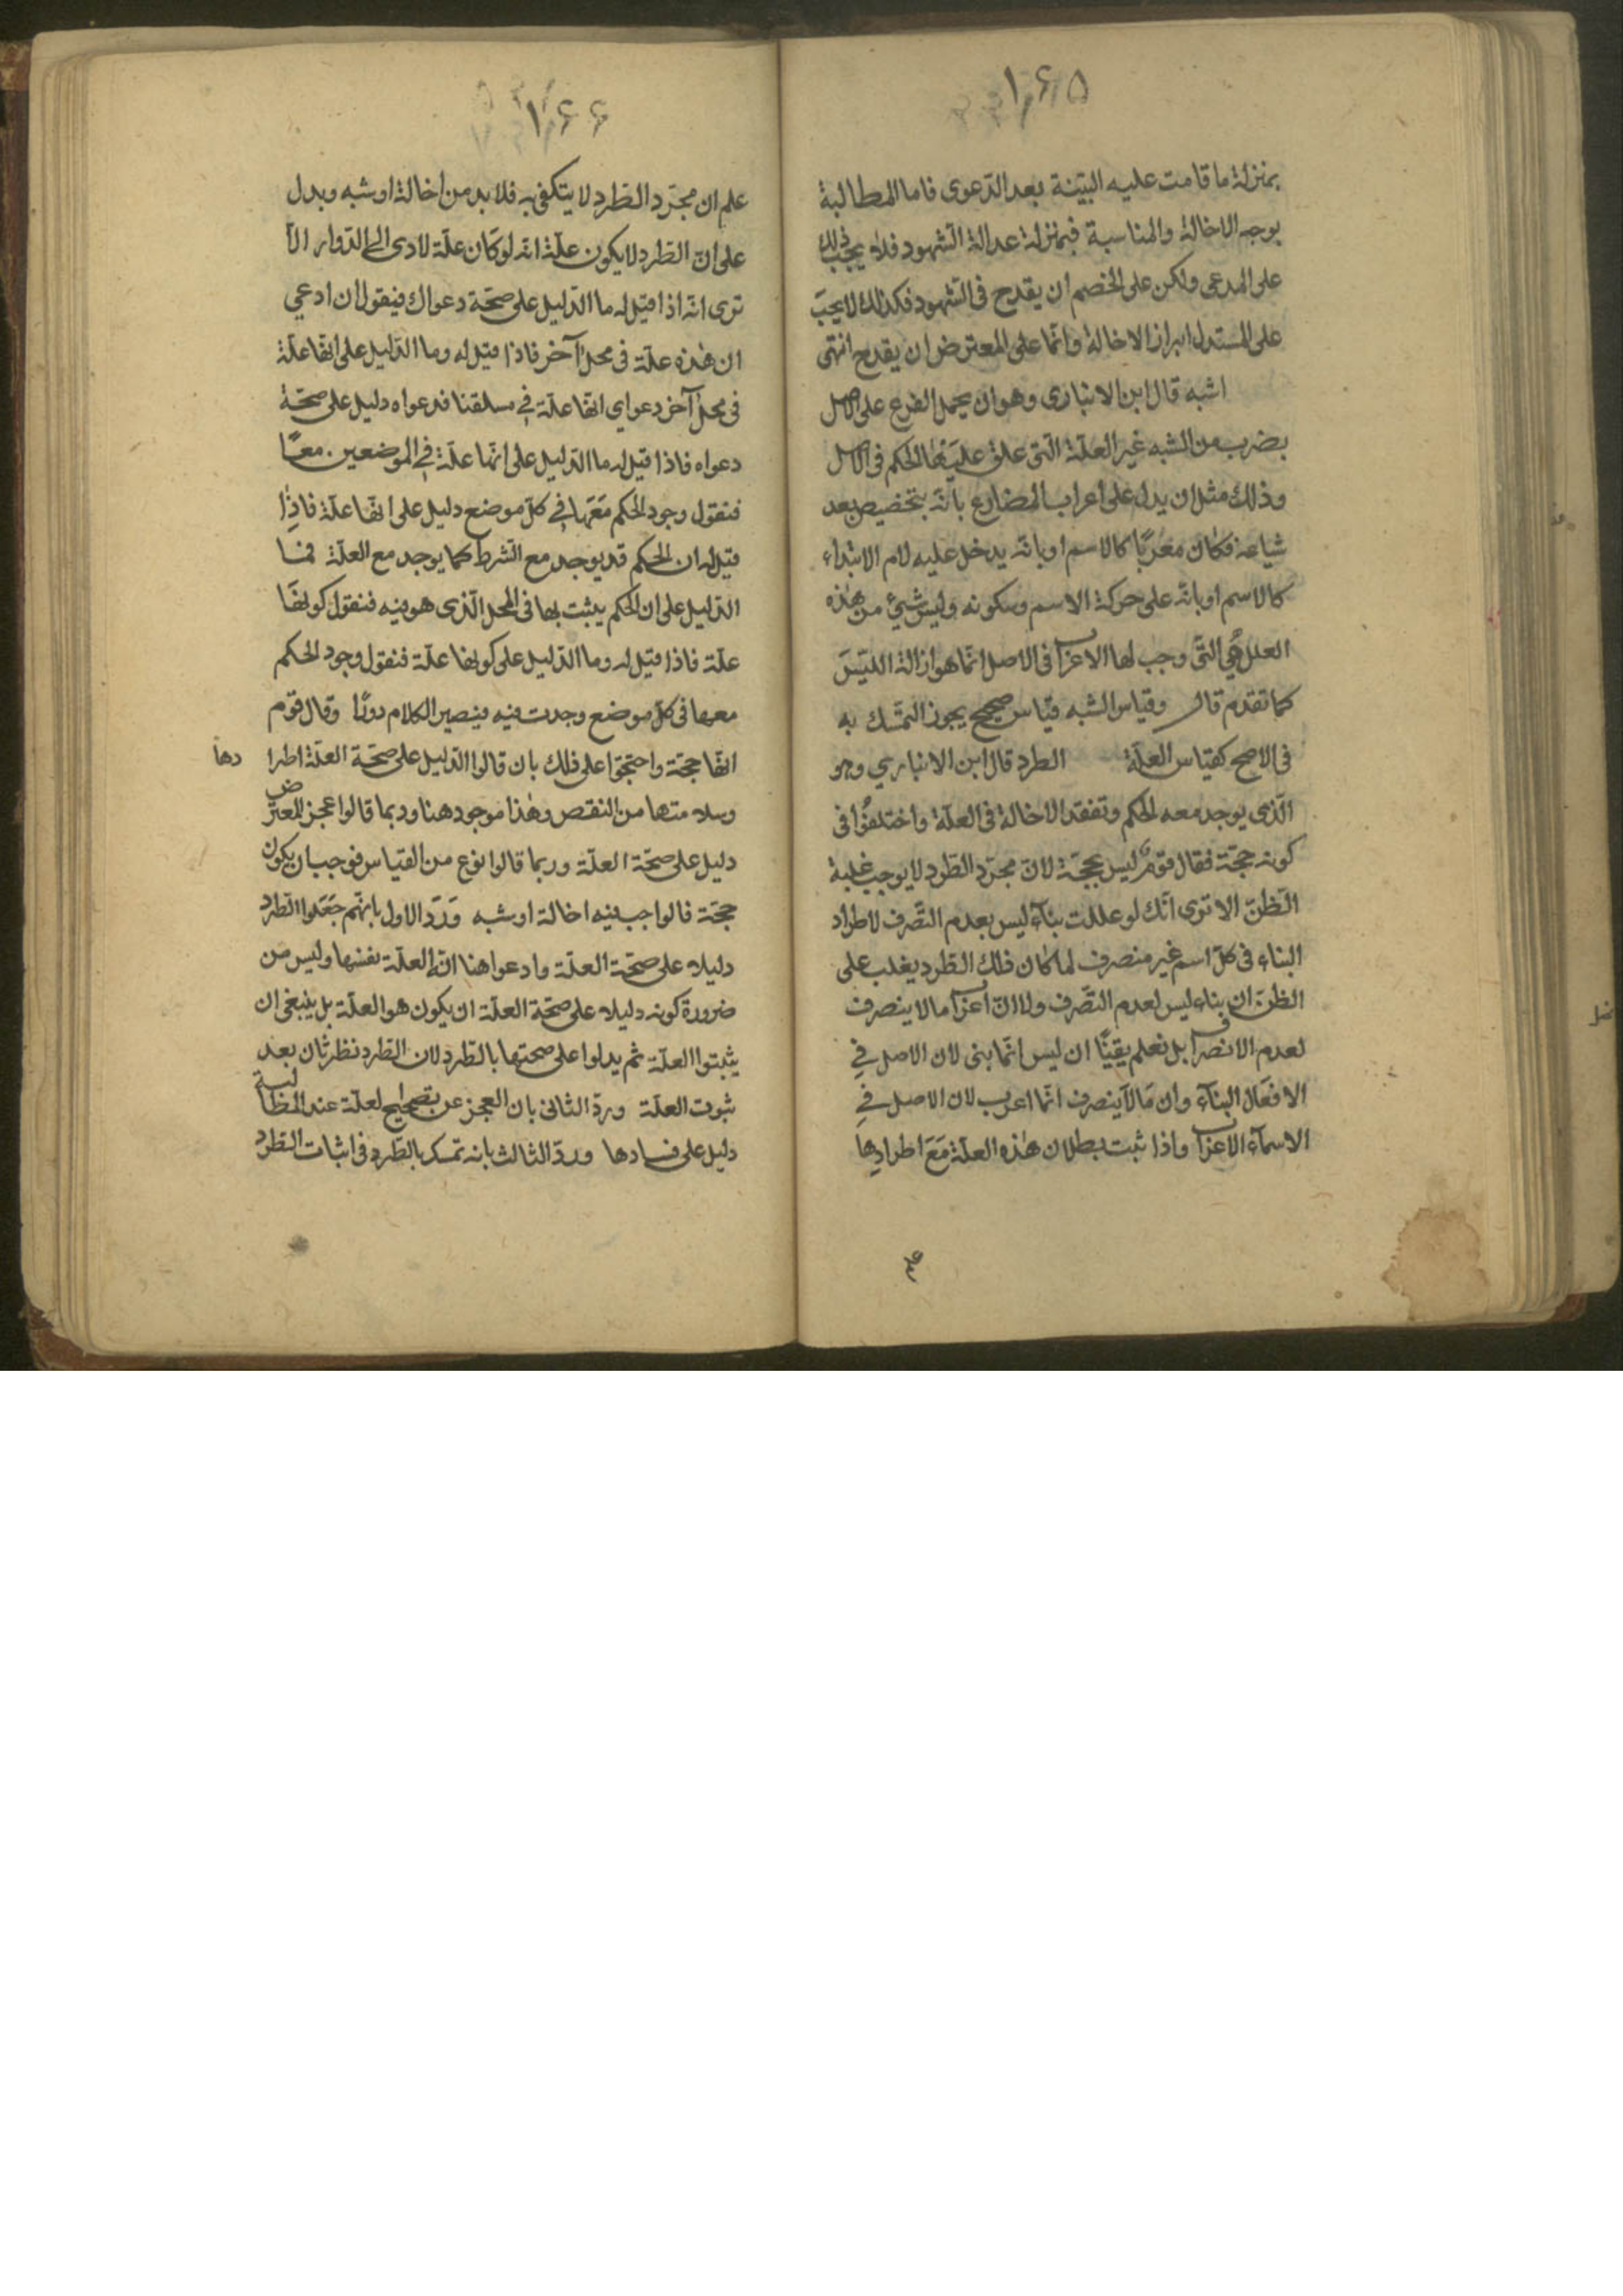 ١٦٥
بمنزلة ما قامت عليه البيّنة بعد الدّعوى فاما المطالبة
بوجه الاخالة والمناسبة فبمنزلة عدالة الشهود فلا يجب ذلك
على المدعى ولكن على الخصم ان يقدح فى الشهود فكذلك لا يجب
على المستدل ابراز الاخالة وانّما على المعترض ان يقدح انتهى
اشبه قال ابن الانبارى وهو ان يحمل الفرع على الاصل
بضرب من الشبه غير العلّة الّتى علق عليها الحكم فى الاصل
وذلك مثل ان يدل على اعراب المضارع بانّه يتخصيص بعد
شياعه فكان معربًا كالاسم او بانّه يدخل عليه لام الابتداء
كالاسم او بانّه على حركة الاسم وسكونه وليس شئ من هذه
العلل هي التّى وجب لها الاعراب فى الاصل انّما هو ازالة اللبس
كما تقدم قال وقياس الشبه قياس صحيح يجوز التمسّك به
فى الاصح كقياس العلّة الطرد قال ابن الانباري وهو
الّذى يوجد معه الحكم وتفقد الاخالة فى العلّة واختلفُوا فى
كونه حجّة فقال قومٌ ليس بحجّة لانّ مجرّد الطّرد لا يوجب غلبة
الظّنّ الا ترى انّك لو عللت بناء ليس بعدم التّصرف لاطراد
البناء فى كلّ اسم غير منصرف لما كان ذلك الطّرد يغلب على
الظنّ ان بناء ليس لعدم التّصرف ولا انّ اعراب ما لا ينصرف
لعدم الانصراف بل نعلم يقينًا ان ليس انّما بنى لان الاصل في
الافعال البنآء وان ما لا ينصرف انّما اعرب لان الاصل في
الاسمآء الاعراب واذا ثبت بطلان هذه العلّة مَعَ اطرادها
علم
١٦٦
علم ان مجرّد الطّرد لا يتكفى به فلا بد من اخالة او شبه ويدل
على انّ الطّرد لا يكون علّة انّه لو كان علّة لادى الى الدّوار الآ
ترى انّه اذا قيل له ما الدّليل على صحّة دعواك فيقول ان ادعي
ان هذه علّة فى محلّ آخر فاذا قيل له وما الدّليل على انّها علّة
فى محلّ آخر دعواي انّها علّة في مسلقنا فدعواه دليل على صحّة
دعواه فاذا قيل له ما الدّليل على انّها علّة في الموضعين معًا
فنقول وجود الحكم مَعَها في كلّ موضع دليل على انّها علّة فاذا
قيل له ان الحكم قد يوجد مع الشرط كما يوجد مع العلّة فما
الدّليل على ان الحكم يثبت بها فى المحل الّذى هو فيه فنقول كونها
علّة فاذا قيل له وما الدّليل على كونها علّة فنقول وجود الحكم
معها فى كلّ موضع وجدت فيه فيصير الكلام دورًا وقال قوم
انّها حجّة واحتجّوا على ذلك بان قالوا الدّليل على صحّة العلّة اطرا دها
وسلامتها من النقص وهذا موجود هنا وربما قالوا عجز المعترض
دليل على صحّة العلّة وربما قالوا نوع من القياس فوجب ان يكون
حجّة فالواجب فيه اخالة او شبه وَرَدّ الاول بانهّم جَعَلوا الطّرد
دليلا على صحّة العلّة وادعوا هنا انّه العلّة نفسها وليس من
ضرورة كونه دليلا على صحّة العلّة ان يكون هو العلّة بل ينبغى ان
يثبتوا العلّة ثم يدلوا على صحتها بالطّرد لان الطّرد نظر ثان بعد
ثبوت العلّة وردّ الثانى بان العجز عن تصحيح العلّة عند المطالبة
دليل على فسادها وردّ الثالث بانه تمسك بالطّرد فى اثبات الطّرد